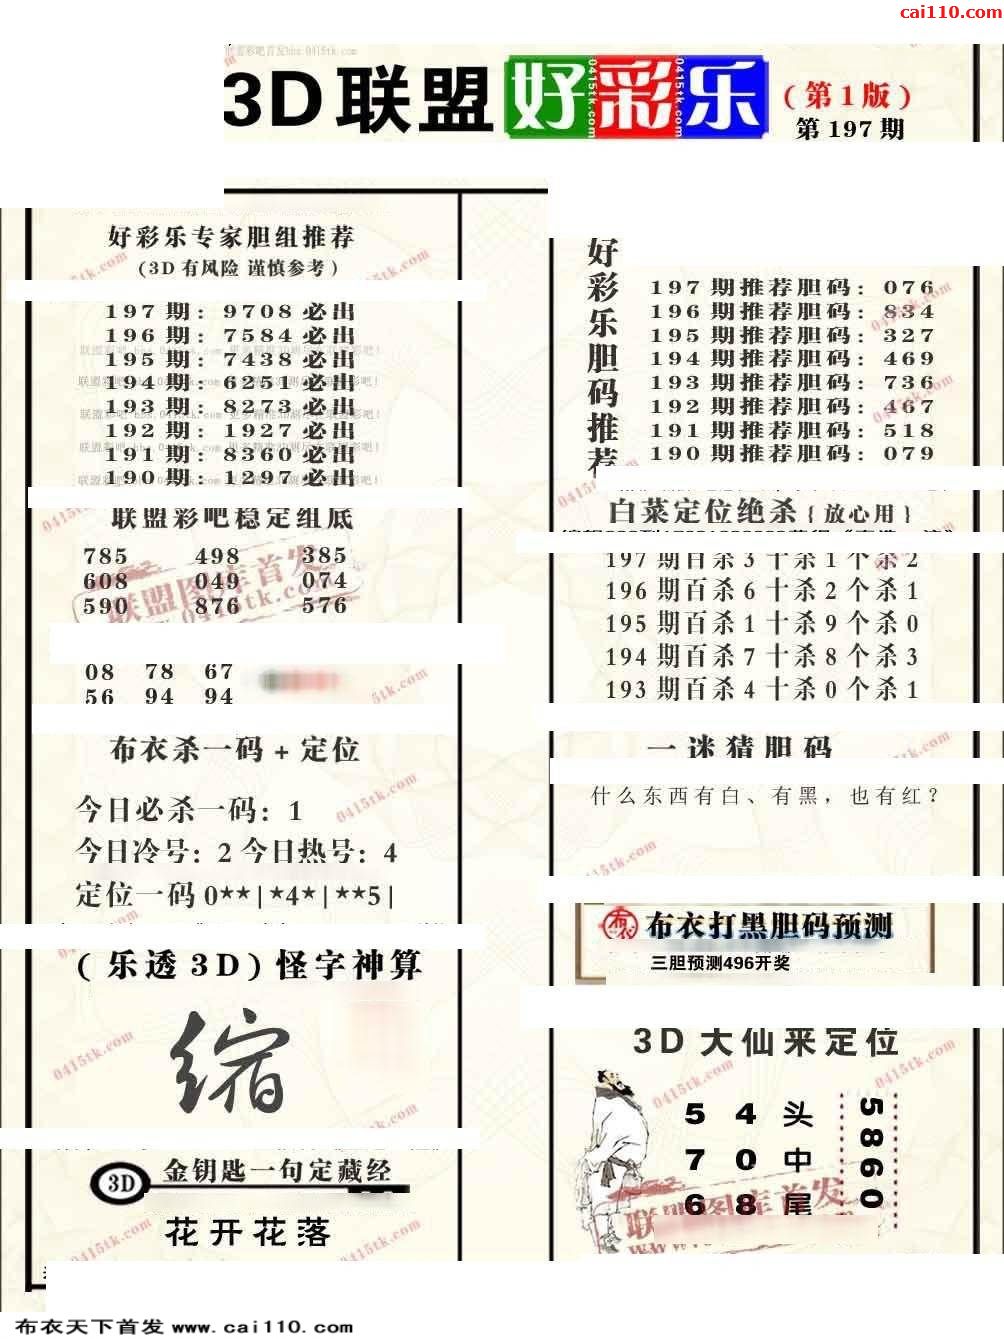 cai110.com
3D联盟 好彩乐 (第1版)
第197期
好彩乐专家胆组推荐
(3D有风险 谨慎参考)
197期: 9708必出
196期: 7584必出
195期: 7438必出
194期: 6251必出
193期: 8273必出
192期: 1927必出
191期: 8360必出
190期: 1297必出
联盟彩吧稳定组底
785 498 385
608 049 074
590 876 576
08 78 67
56 94 94
布衣杀一码+定位
今日必杀一码: 1
今日冷号: 2 今日热号: 4
定位一码 0**|*4*|**5|
(乐透3D)怪字神算
缩
3D 金钥匙一句定藏经
花开花落
好彩乐胆码推荐
197期推荐胆码: 076
196期推荐胆码: 834
195期推荐胆码: 327
194期推荐胆码: 469
193期推荐胆码: 736
192期推荐胆码: 467
191期推荐胆码: 518
190期推荐胆码: 079
白菜定位绝杀{放心用}
197期百杀3十杀1个杀2
196期百杀6十杀2个杀1
195期百杀1十杀9个杀0
194期百杀7十杀8个杀3
193期百杀4十杀0个杀1
一迷猜胆码
什么东西有白、有黑，也有红?
布衣 布衣打黑胆码预测
三胆预测496开奖
3D大仙来定位
5 4 头
7 0 中
6 8 尾
5860
联盟图库首发
0415tk.com
布衣天下首发 www.cai110.com